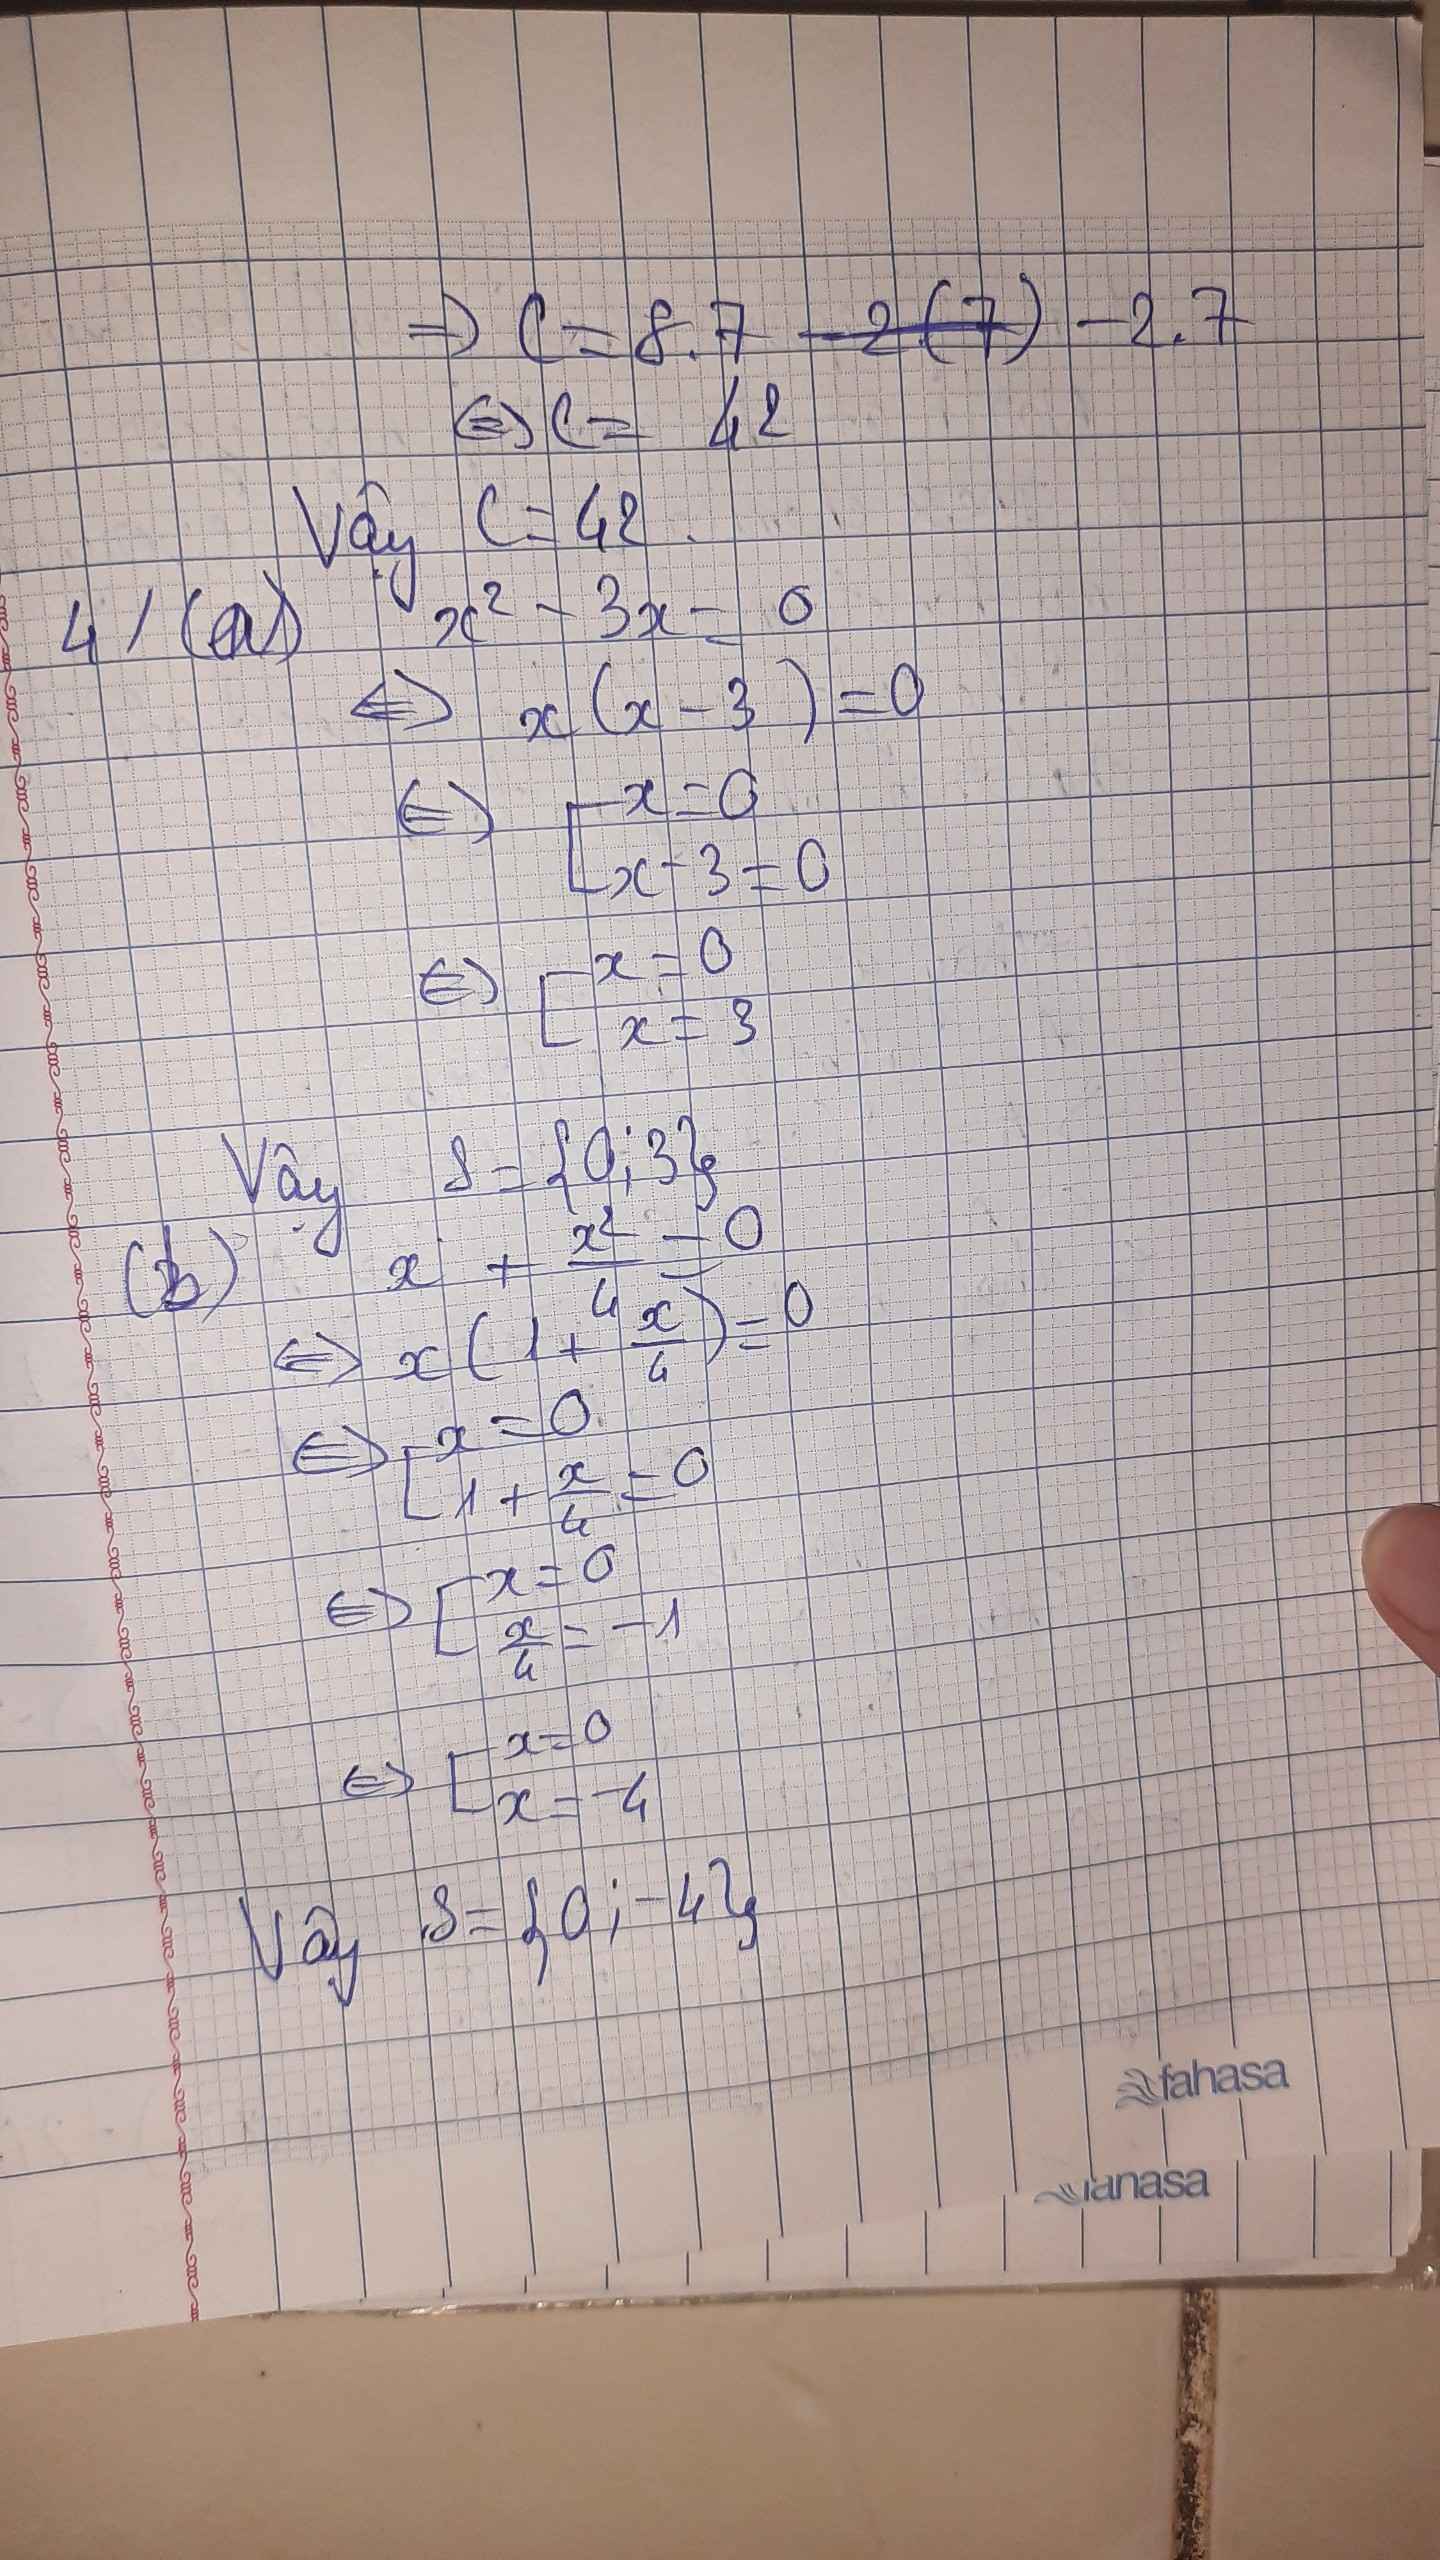 => C = 8.7 - 2.7
<=> C = 42
Vậy C = 42.
4/(a) x² - 3x = 0
<=> x(x - 3) = 0
<=> [ x = 0
x - 3 = 0
<=> [ x = 0
x = 3
Vậy S = {0; 3}
(b) x + x²/4 = 0
<=> x(1 + x/4) = 0
<=> [ x = 0
1 + x/4 = 0
<=> [ x = 0
x/4 = -1
<=> [ x = 0
x = -4
Vậy S = {0; -4}
fahasa
fahasa